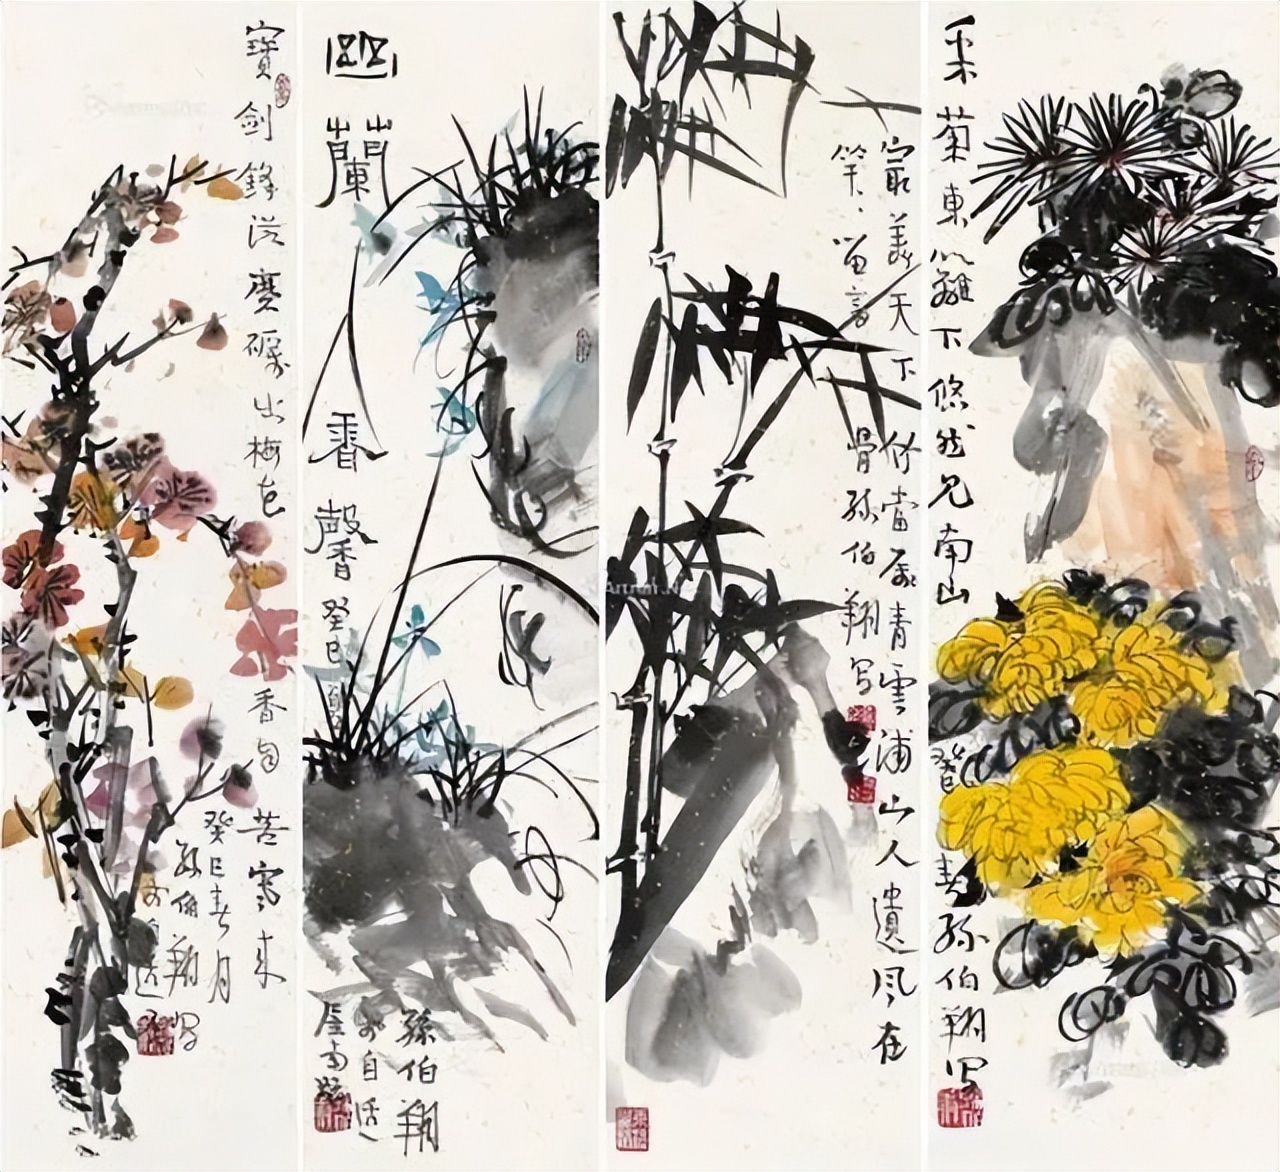 寶劍鋒從磨礪出梅花
香自苦寒来
癸巳春月
孫伯翔写
於自适
幽蘭
香馨
癸巳
孫伯翔
於自适
屋南窓
最美天下竹当属青雲浦山人遺風在
笑笑留言
骨孫伯翔写
采菊東篱下悠然見南山
癸巳春孫伯翔写